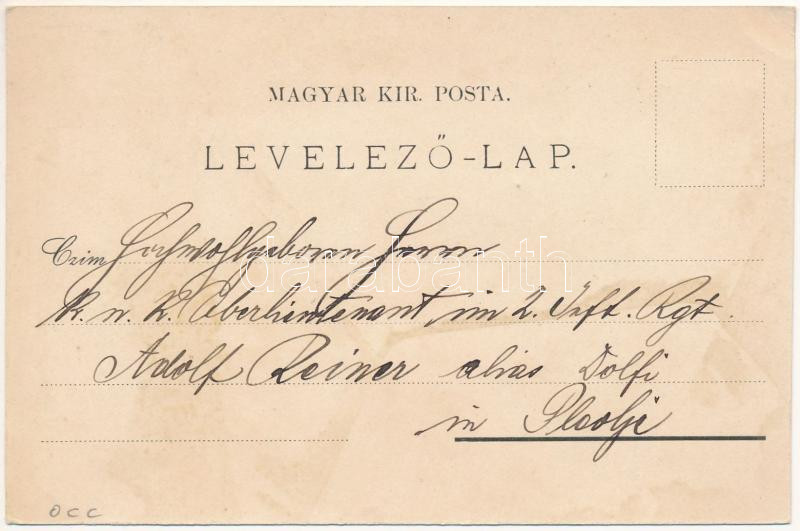 MAGYAR KIR. POSTA.
LEVELEZŐ-LAP.
Czim Hochwohlgeboren Herrn
darabanth
k. u. k. Oberlieutenant im 2. Inft. Rgt.
Adolf Reiner alias Dolfi
in Plevlje
OCC